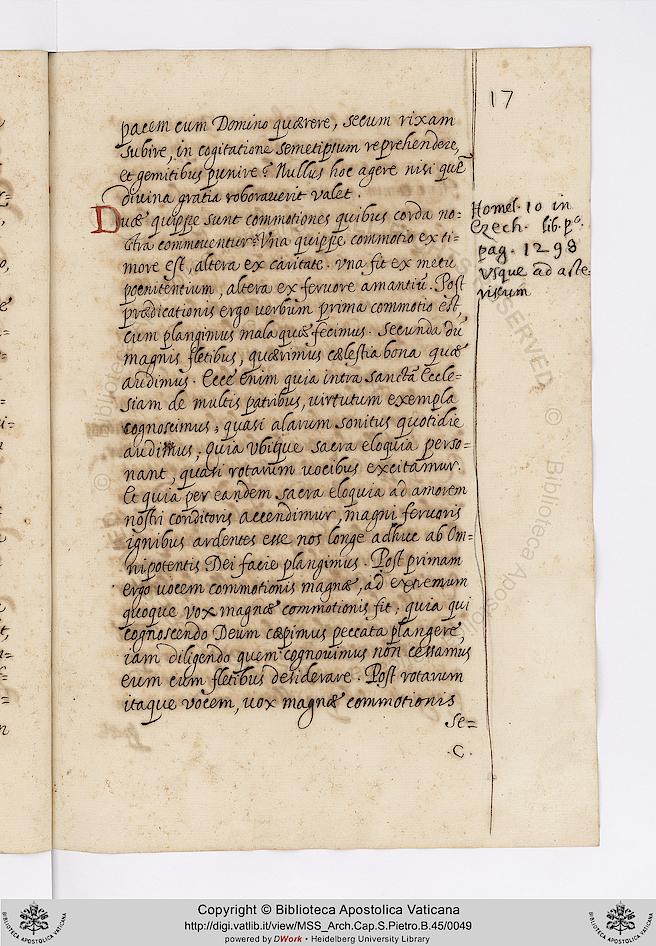 17
pacem cum Domino quærere, secum rixam
subire, in cogitatione semetipsum reprehendere,
et gemitibus punire? Nullus hoc agere nisi quē
divina gratia roboraverit valet.
Duæ quippe sunt commotiones quibus corda no=
stra commoventur: Vna quippe commotio ex ti=
more est, altera ex caritate. Vna fit ex metu
pœnitentium, altera ex fervore amantiū. Post
prædicationis ergo verbum prima commotio est,
cum plangimus mala quæ fecimus. Secunda dū
magnis fletibus, quærimus cælestia bona quæ
audimus. Ecce enim quia intra sanctā Eccle=
siam de multis patribus, uirtutum exempla
cognoscimus; quasi alarum sonitus quotidie
audimus, Quia vbique sacra eloquia perso=
nant, quasi rotarum uocibus excitamur.
Et quia per eandem sacra eloquia ad amorem
nostri conditoris accendimur, magni fervoris
ignibus ardentes esse nos longe adhuc ab Om=
nipotentis Dei facie plangimus. Post primam
ergo uocem commotionis magnæ, ad extremum
quoque vox magnæ commotionis fit; quia qui
cognoscendo Deum cæpimus peccata plangere,
iam diligendo quem cognouimus non cessamus
eum cum fletibus desiderare. Post rotarum
itaque vocem, uox magnæ commotionis
se=
.C.
Homel. 10 in
Ezech. lib. p.º
pag. 1298
Vsque ad aste=
riscum
Copyright © Biblioteca Apostolica Vaticana
http://digi.vatlib.it/view/MSS_Arch.Cap.S.Pietro.B.45/0049
powered by DWork • Heidelberg University Library